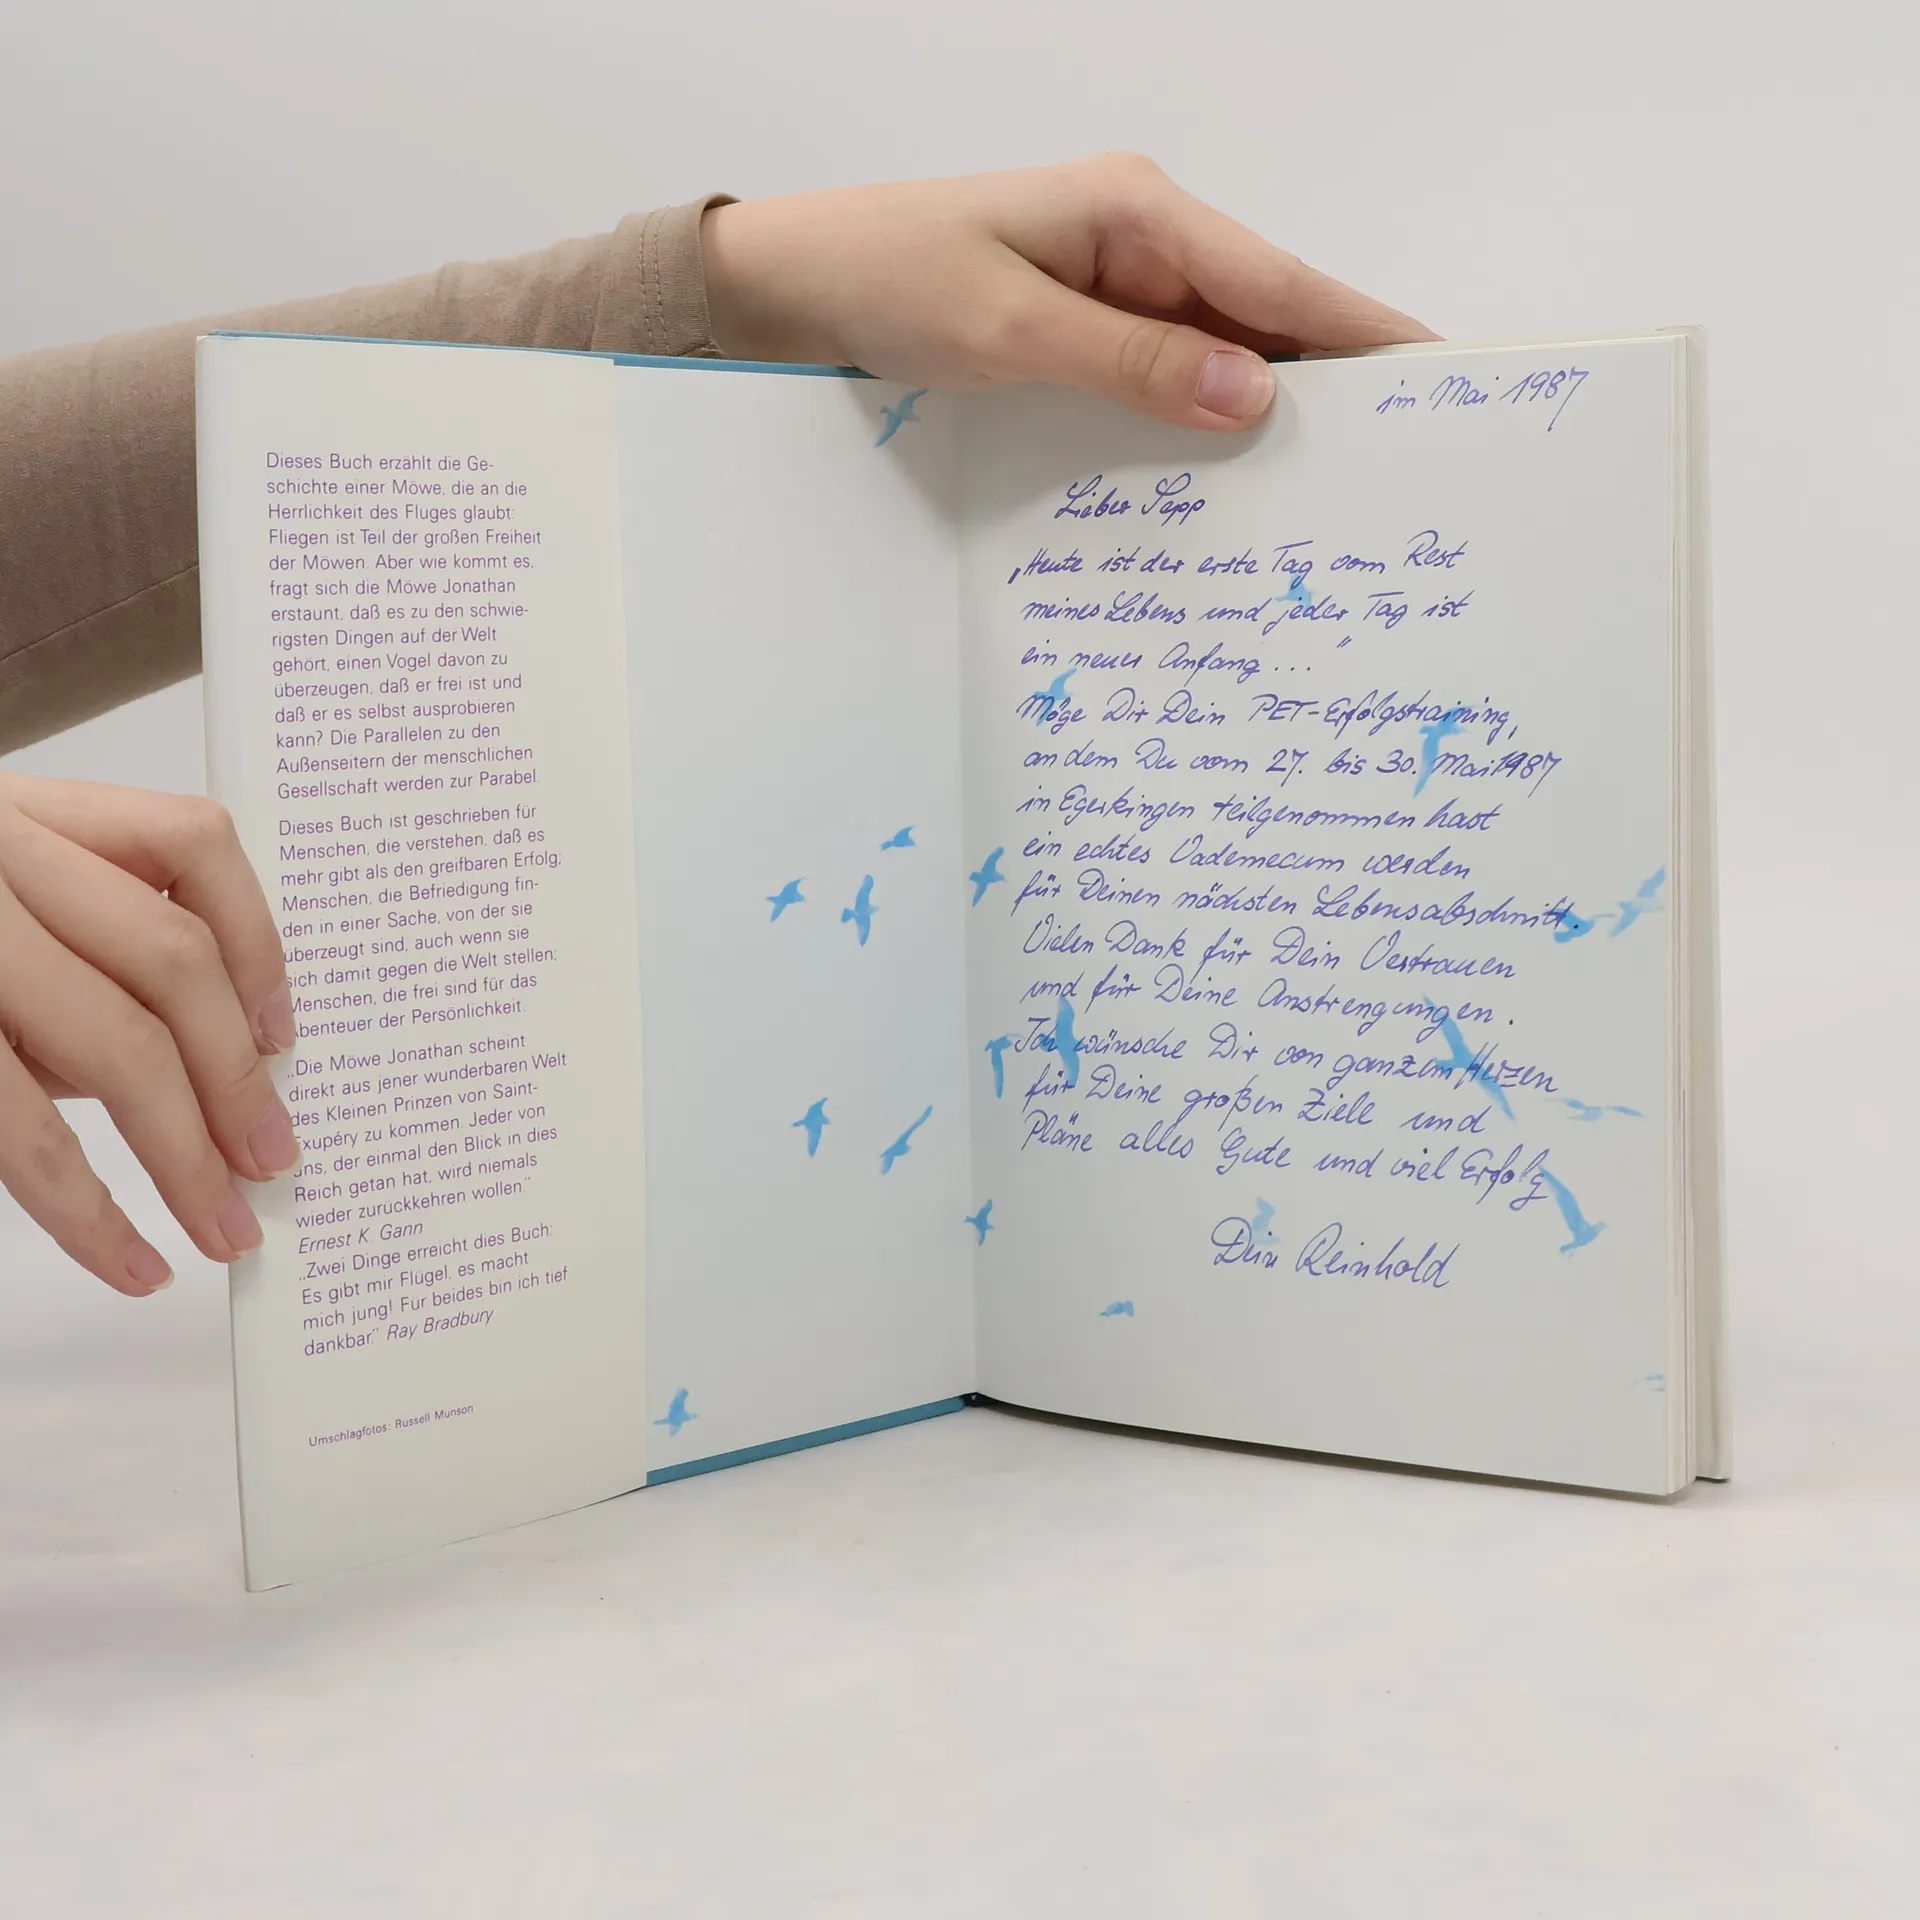 Dieses Buch erzählt die Ge-
schichte einer Möwe, die an die
Herrlichkeit des Fluges glaubt:
Fliegen ist Teil der großen Freiheit
der Möwen. Aber wie kommt es,
fragt sich die Möwe Jonathan
erstaunt, daß es zu den schwie-
rigsten Dingen auf der Welt
gehört, einen Vogel davon zu
überzeugen, daß er frei ist und
daß er es selbst ausprobieren
kann? Die Parallelen zu den
Außenseitern der menschlichen
Gesellschaft werden zur Parabel.
Dieses Buch ist geschrieben für
Menschen, die verstehen, daß es
mehr gibt als den greifbaren Erfolg;
Menschen, die Befriedigung fin-
den in einer Sache, von der sie
überzeugt sind, auch wenn sie
sich damit gegen die Welt stellen;
Menschen, die frei sind für das
Abenteuer der Persönlichkeit.
„Die Möwe Jonathan scheint
direkt aus jener wunderbaren Welt
des Kleinen Prinzen von Saint-
Exupéry zu kommen. Jeder von
uns, der einmal den Blick in dies
Reich getan hat, wird niemals
wieder zurückkehren wollen."
Ernest K. Gann
„Zwei Dinge erreicht dies Buch:
Es gibt mir Flügel, es macht
mich jung! Für beides bin ich tief
dankbar." Ray Bradbury
Umschlagfotos: Russell Munson
im Mai 1987
Lieber Sepp
„Heute ist der erste Tag vom Rest
meines Lebens und jeder Tag ist
ein neuer Anfang ..."
Möge Dir Dein PET-Erfolgstraining,
an dem Du vom 27. bis 30. Mai 1987
in Egerkingen teilgenommen hast
ein echtes Vademecum werden
für Deinen nächsten Lebensabschnitt.
Vielen Dank für Dein Vertrauen
und für Deine Anstrengungen.
Ich wünsche Dir von ganzem Herzen
für Deine großen Ziele und
Pläne alles Gute und viel Erfolg
Dein Reinhold